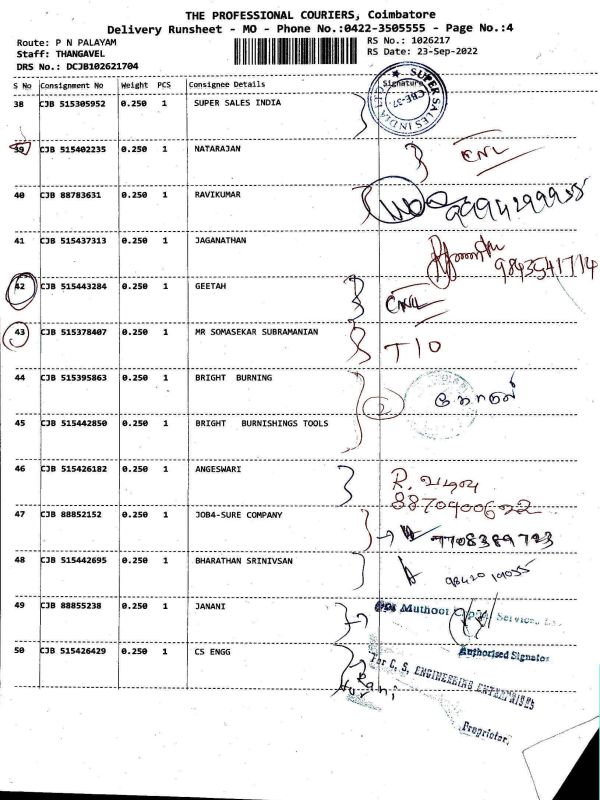 THE PROFESSIONAL COURIERS, Coimbatore
Delivery Runsheet - MO - Phone No.:0422-3505555 - Page No.:4
Route: P N PALAYAM
RS No.: 1026217
Staff: THANGAVEL
RS Date: 23-Sep-2022
DRS No.: DCJB102621704
S No Consignment No Weight PCS Consignee Details Signature
SUPER SALES INDIA
CBE-37
38 CJB 515305952 0.250 1 SUPER SALES INDIA
39 CJB 515402235 0.250 1 NATARAJAN CNL
40 CJB 88783631 0.250 1 RAVIKUMAR
41 CJB 515437313 0.250 1 JAGANATHAN
9843541714
42 CJB 515443284 0.250 1 GEETAH CNL
43 CJB 515378407 0.250 1 MR SOMASEKAR SUBRAMANIAN T/O
44 CJB 515395863 0.250 1 BRIGHT BURNING
2
45 CJB 515442850 0.250 1 BRIGHT BURNISHINGS TOOLS
46 CJB 515426182 0.250 1 ANGESWARI R.
8870900622
47 CJB 88852152 0.250 1 JOB4-SURE COMPANY
7708389723
48 CJB 515442695 0.250 1 BHARATHAN SRINIVSAN
49 CJB 88855238 0.250 1 JANANI
For Muthoot Services
50 CJB 515426429 0.250 1 CS ENGG
Authorised Signator
For C. S. ENGINEERING ENTERPRISES
Rani
Proprietor